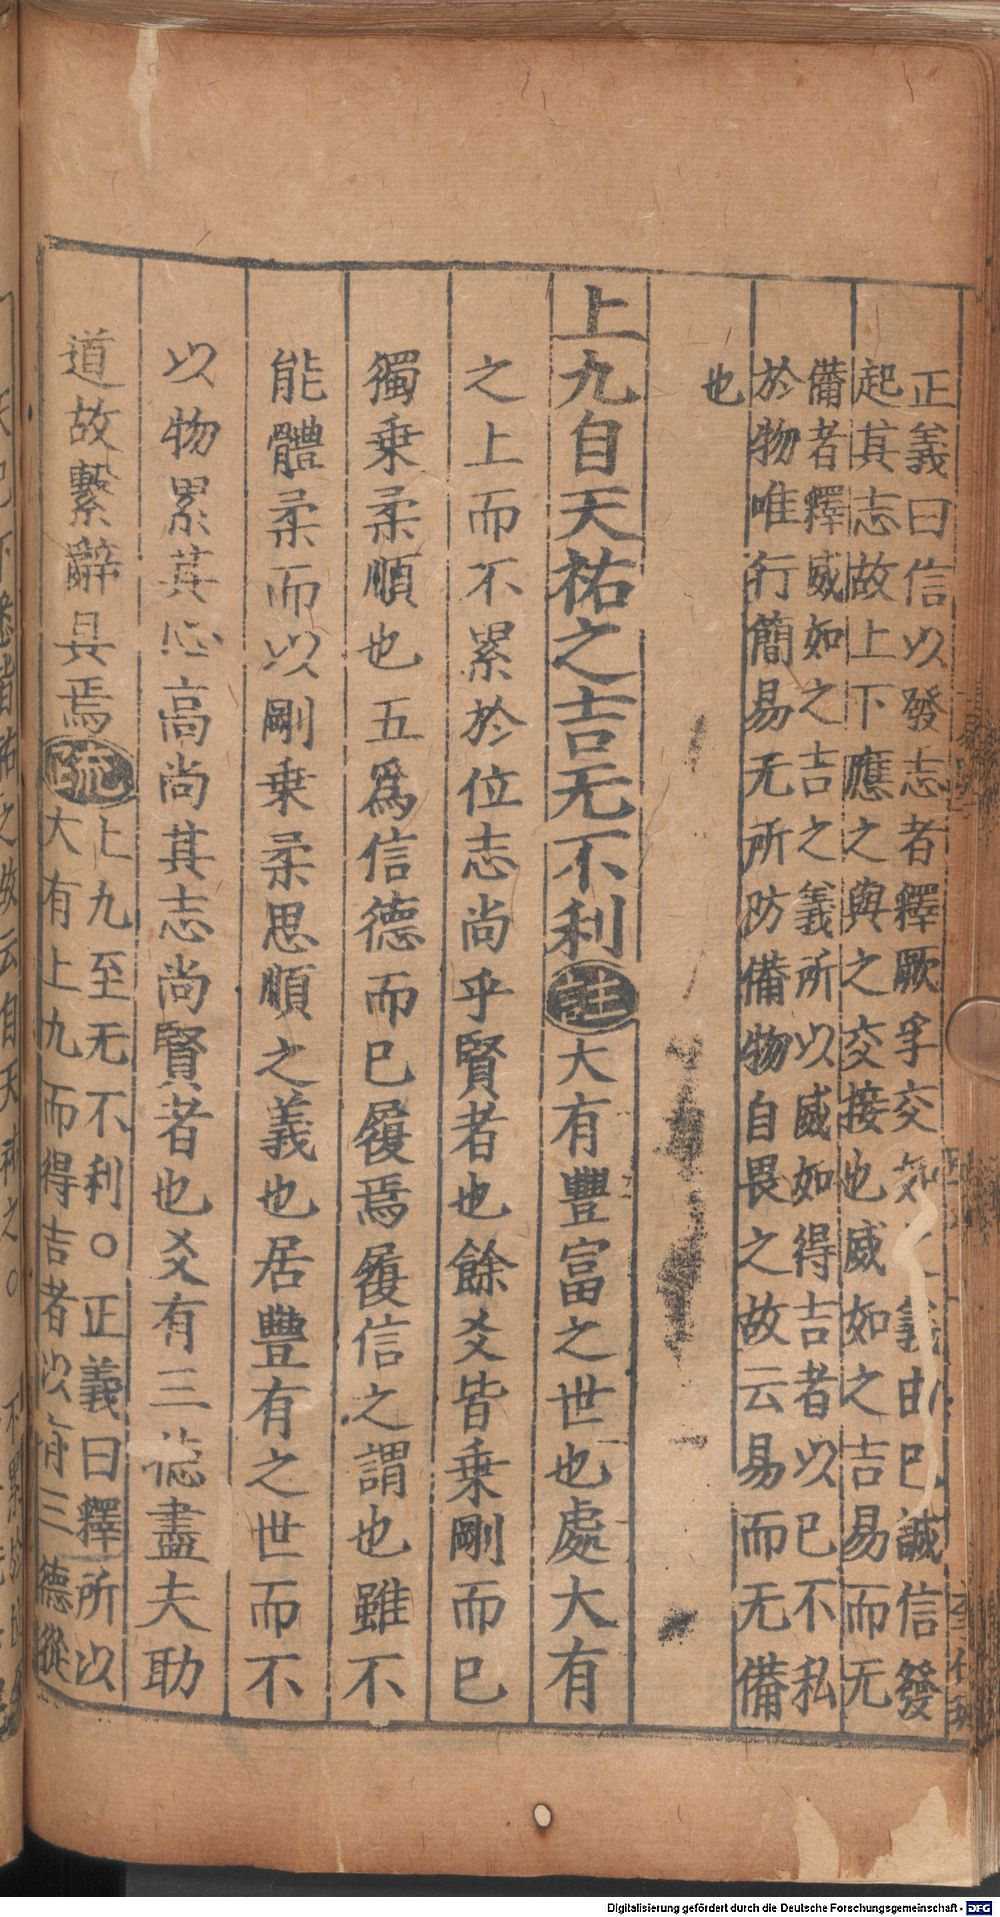 正義曰信以發志者釋厥孚交如之義由己誠信發
起其志故上下應之與之交接也威如之吉易而无
備者釋威如之吉之義所以威如得吉者以己不私
於物唯行簡易无所防備物自畏之故云易而无備
也
上九自天祐之吉无不利註大有豐富之世也處大有
之上而不累於位志尚乎賢者也餘爻皆乗剛而已
獨乗柔順也五爲信德而已履焉履信之謂也雖不
能體柔而以剛乗柔思順之義也居豐有之世而不
以物累其心高尚其志尚賢者也爻有三德盡夫助
道故繫辭具焉疏
上九至无不利○正義曰釋所以
大有上九而得吉者以有三德從
Digitalisierung gefördert durch die Deutsche Forschungsgemeinschaft - DFG